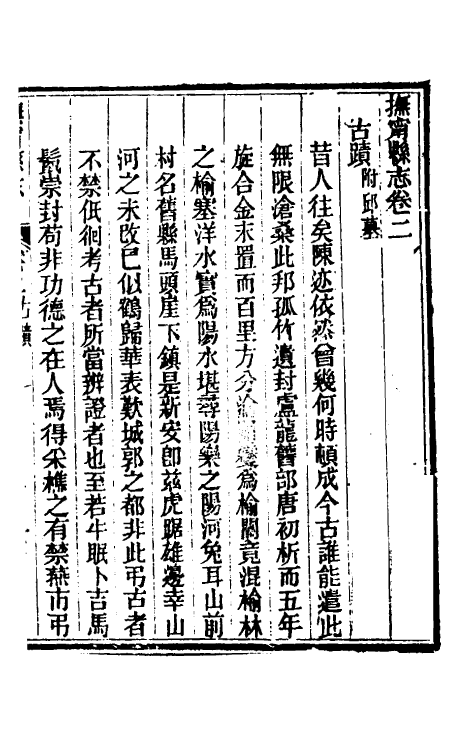 撫甯縣志卷二
古蹟附邱墓
昔人往矣陳迹依然曾幾何時頓成今古誰能遣此
無限滄桑此邦孤竹遺封盧龍舊部唐初析而五年
旋合金末置而百里方分渝關變爲榆關竟混榆林
之榆塞洋水實爲陽水堪尋陽樂之陽河兔耳山前
村名舊縣馬頭崖下鎮是新安卽茲虎踞雄邊幸山
河之未改已似鶴歸華表歎城郭之都非此弔古者
不禁低徊考古者所當辨證者也至若牛眠卜吉馬
鬛崇封苟非功德之在人焉得采樵之有禁燕市弔